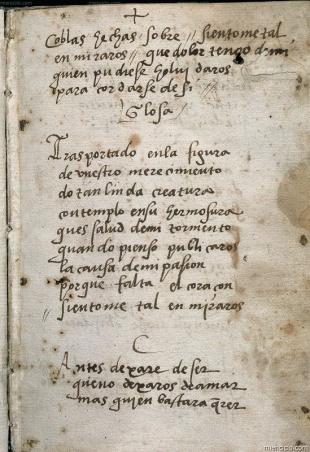 Coblas hechas sobre // sientome tal
en miraros // que dolor tengo de mi
quien pudiese holvidaros
para cordarse de si //
Glosa /
Trasportado enla figura
de vuestro merecimiento
do tan linda creatura
contemplo ensu hermosura
ques salud demi tormento
quando pienso publicaros
la causa demi pasion
porque falta el coracon
sientome tal en miraros
C
Antes dexare de ser
queno dexaros deamar
mas quien bastara qrer
miencicio.com